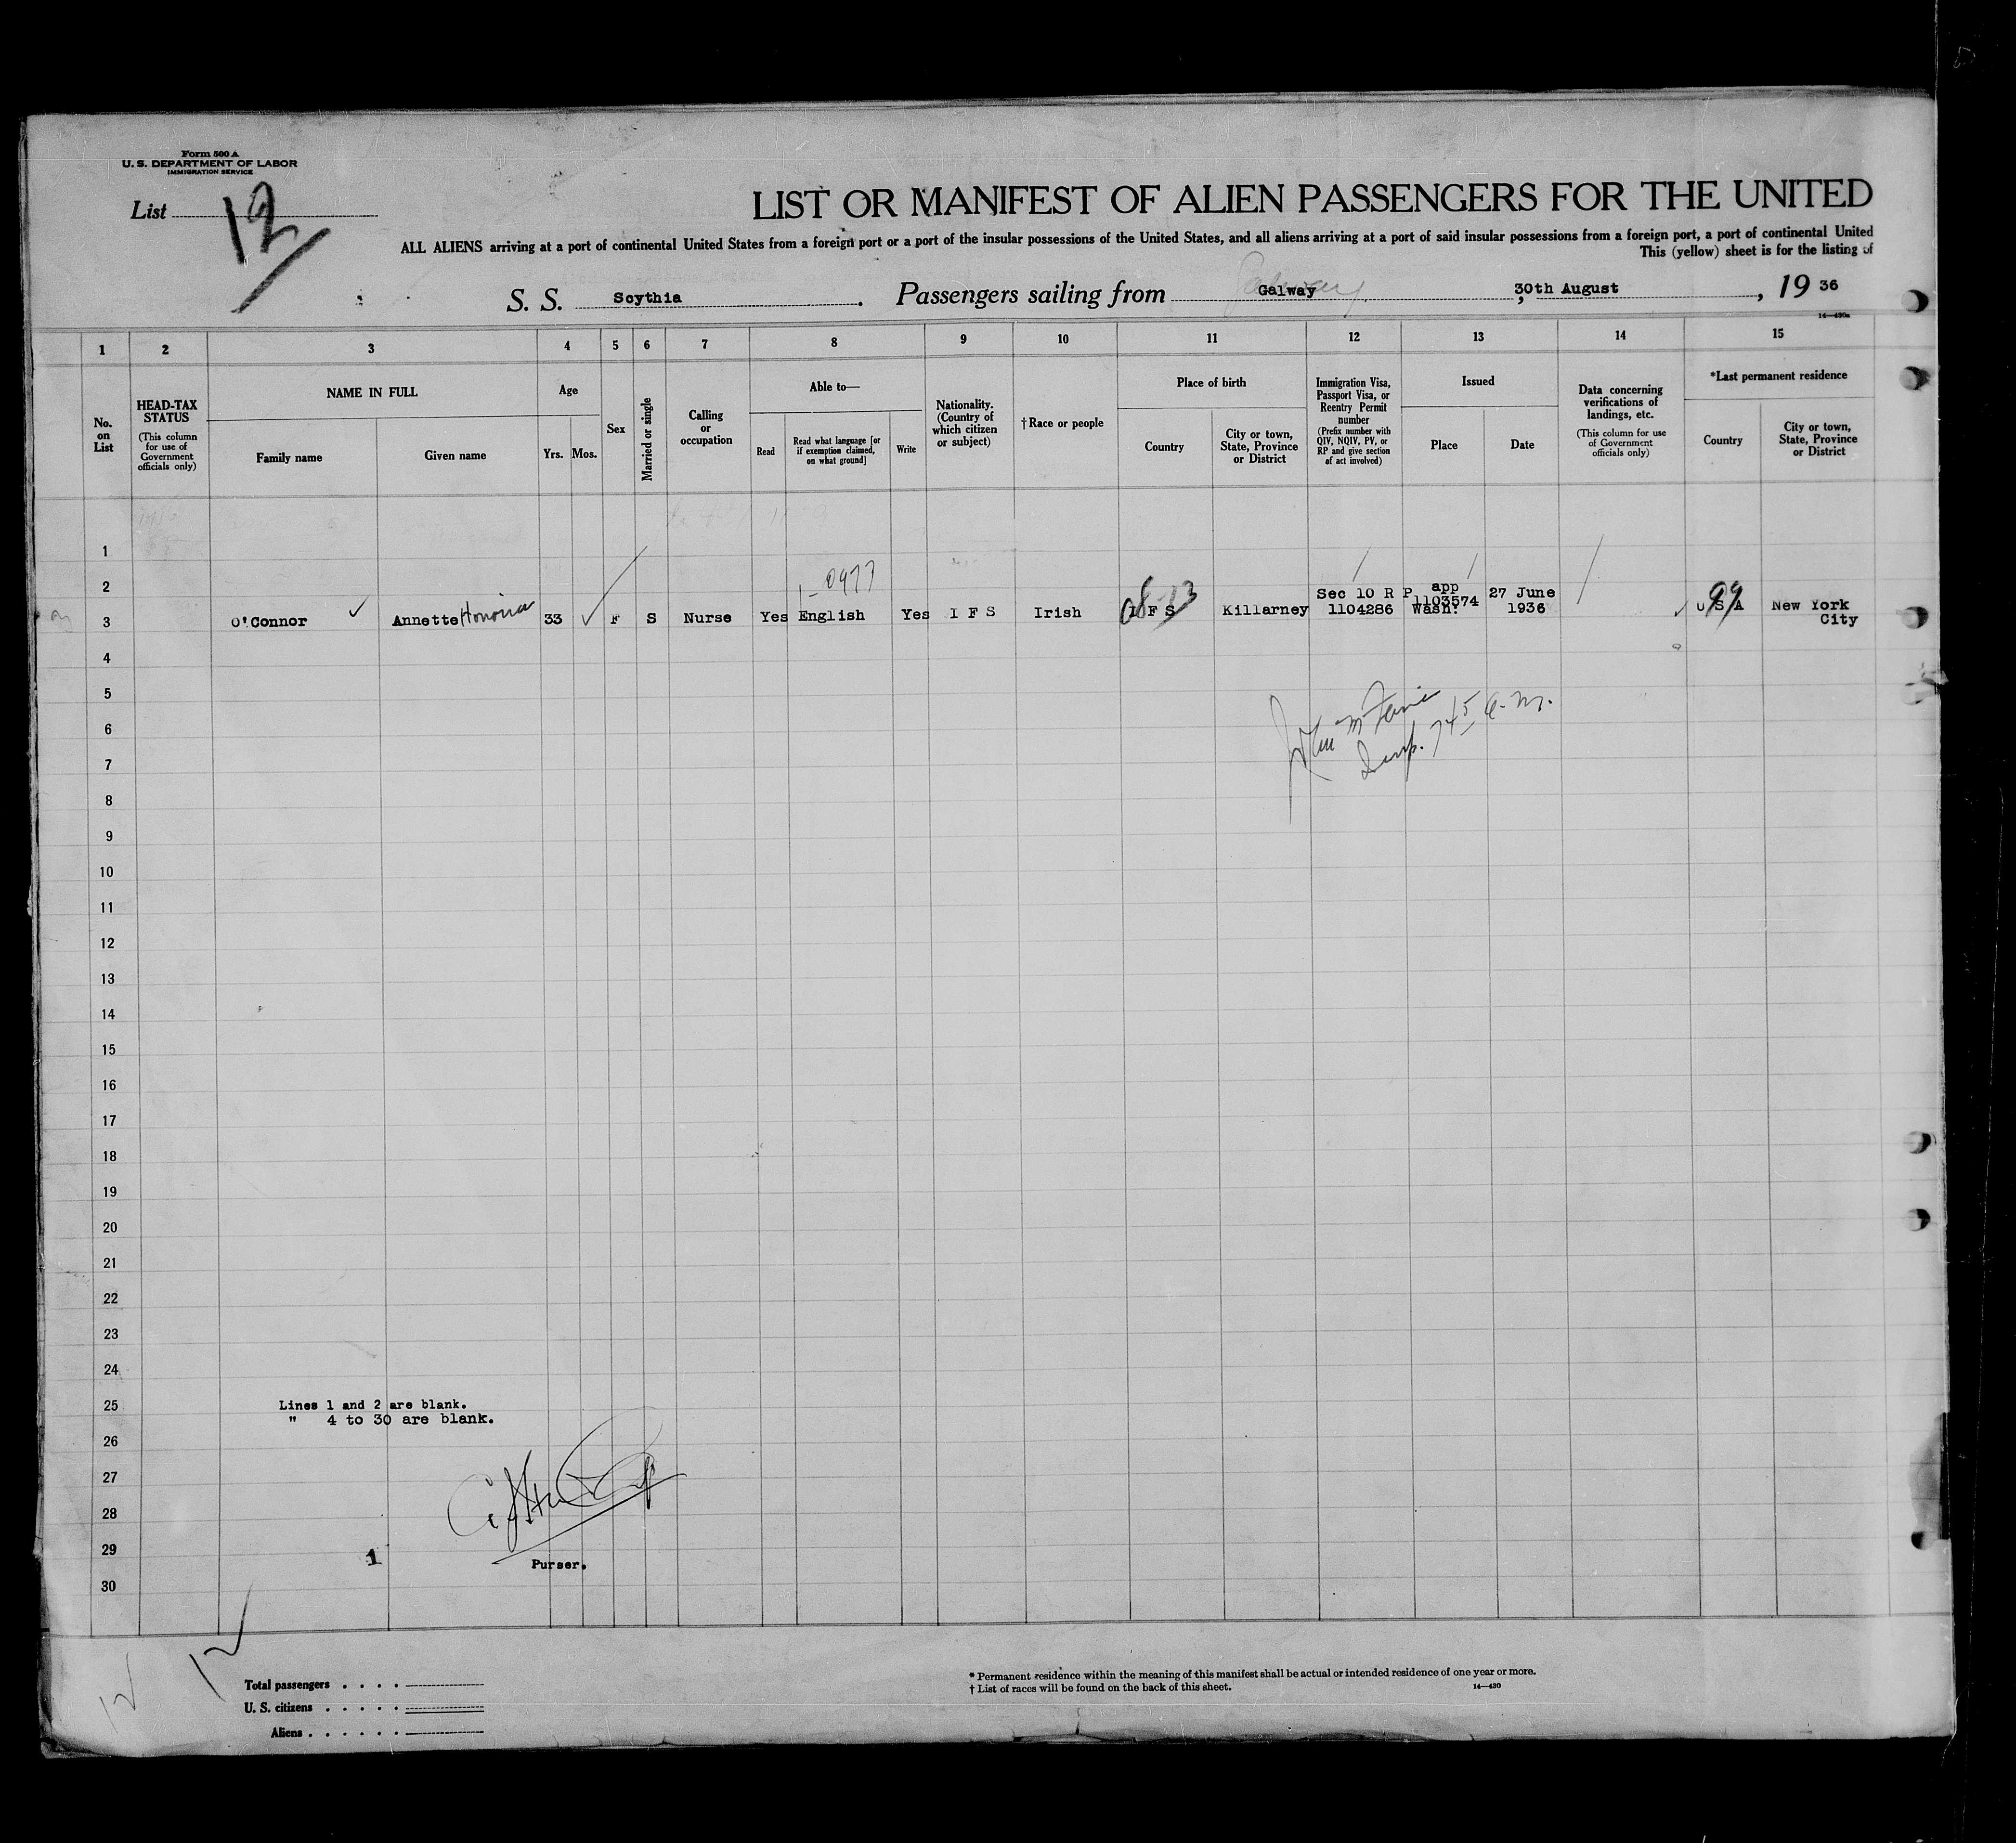 Form 500 A
U. S. DEPARTMENT OF LABOR
IMMIGRATION SERVICE
List 12
LIST OR MANIFEST OF ALIEN PASSENGERS FOR THE UNITED
ALL ALIENS arriving at a port of continental United States from a foreign port or a port of the insular possessions of the United States, and all aliens arriving at a port of said insular possessions from a foreign port, a port of continental United
This (yellow) sheet is for the listing of
S. S. Scythia. Passengers sailing from Galway, 30th August, 19 36
14—430a
1 2 3 4 5 6 7 8 9 10 11 12 13 14 15
No. on List
HEAD-TAX STATUS
(This column for use of Government officials only)
NAME IN FULL
Family name
Given name
Age
Yrs. Mos.
Sex
Married or single
Calling or occupation
Able to—
Read
Read what language [or if exemption claimed, on what ground]
Write
Nationality. (Country of which citizen or subject)
† Race or people
Place of birth
Country
City or town, State, Province or District
Immigration Visa, Passport Visa, or Reentry Permit number
(Prefix number with QIV, NQIV, PV, or RP and give section of act involved)
Issued
Place
Date
Data concerning verifications of landings, etc.
(This column for use of Government officials only)
*Last permanent residence
Country
City or town, State, Province or District
1
2
0477
3 O'Connor Annette Honoria 33 F S Nurse Yes English Yes I F S Irish I F S Killarney Sec 10 R P 1104286 app 1103574 Wash. 27 June 1936 U S A New York City
99
4
5
6
745 a.m.
7
8
9
10
11
12
13
14
15
16
17
18
19
20
21
22
23
24
25 Lines 1 and 2 are blank.
" 4 to 30 are blank.
26
27
28
29 1 Purser.
30
12
12
Total passengers . . . .
U. S. citizens . . . . .
Aliens . . . . . .
* Permanent residence within the meaning of this manifest shall be actual or intended residence of one year or more.
† List of races will be found on the back of this sheet.
14—430